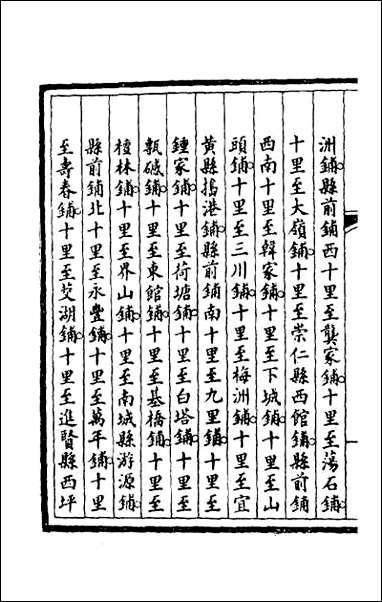 洲鋪縣前鋪西十里至龔家鋪十里至蕩石鋪
十里至大嶺鋪十里至崇仁縣西館鋪縣前鋪
西南十里至韓家鋪十里至下城鋪十里至山
頭鋪十里至三川鋪十里至梅洲鋪十里至宜
黄縣摀港鋪縣前鋪南十里至九里鋪十里至
鍾家鋪十里至荷塘鋪十里至白塔鋪十里至
瓠磩鋪十里至東館鋪十里至基橋鋪十里至
檀林鋪十里至界山鋪十里至南城縣游源鋪
縣前鋪北十里至永豐鋪十里至萬年鋪十里
至壽春鋪十里至艾湖鋪十里至進賢縣西坪